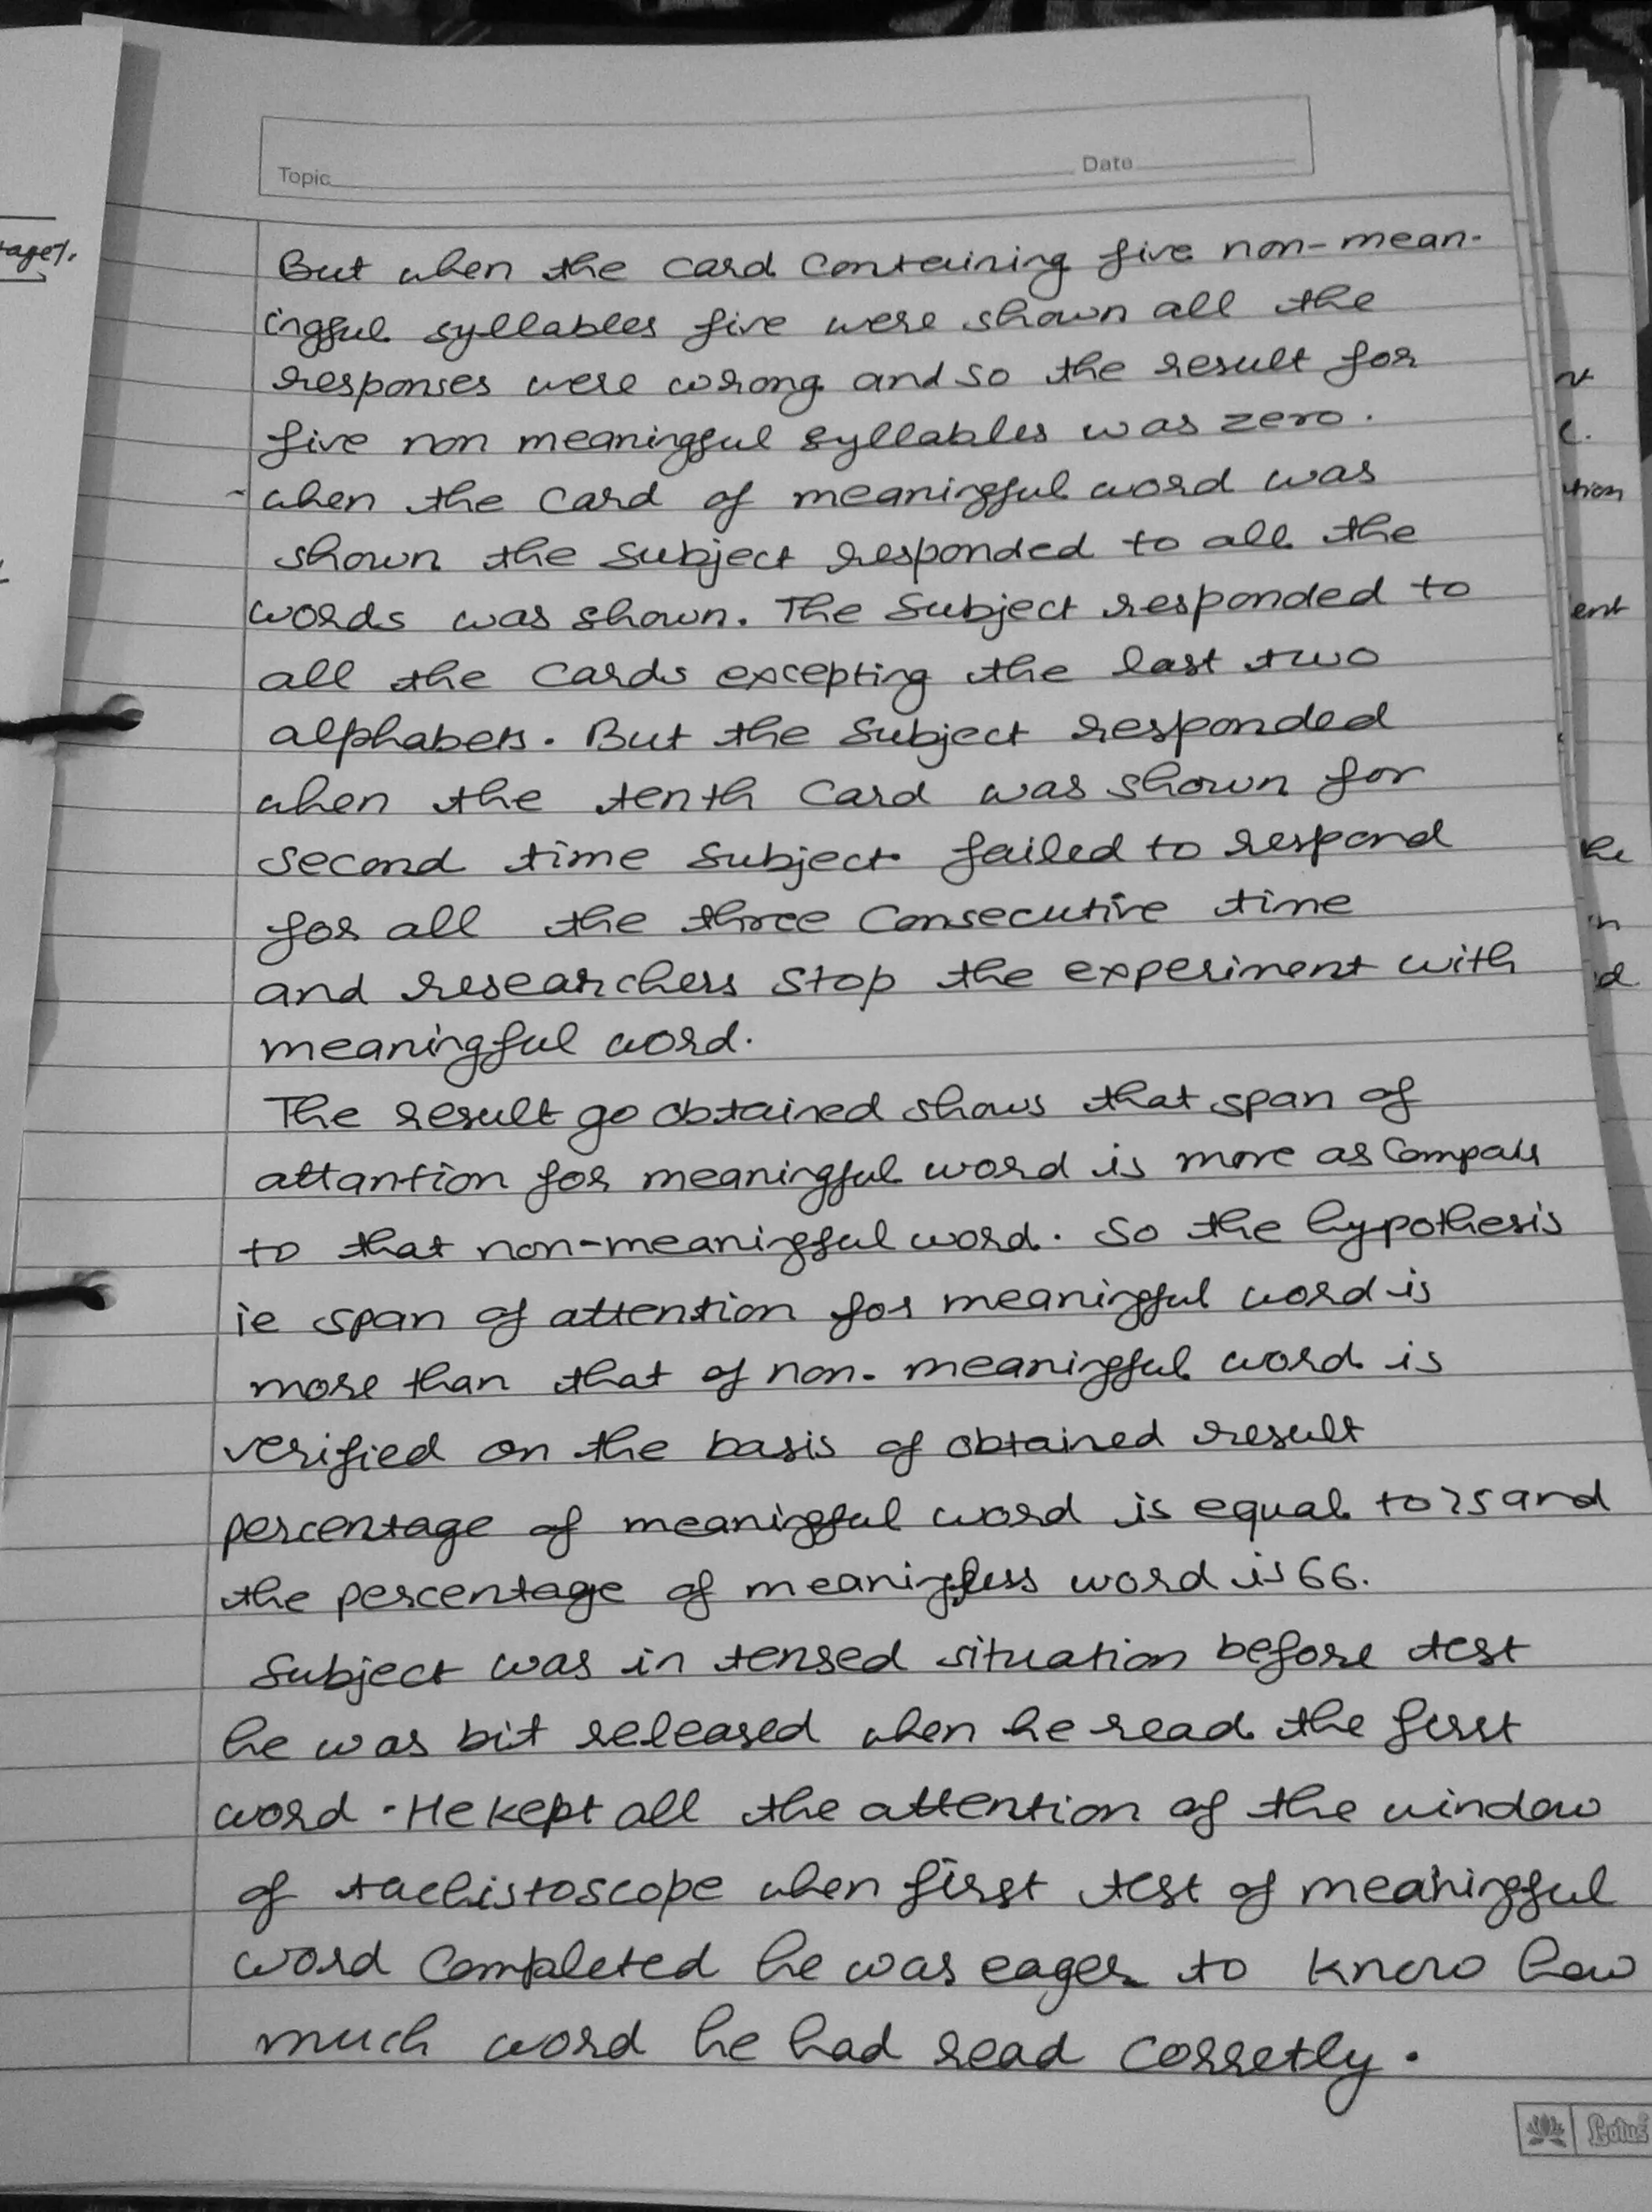 tage%.
Topic
Date
But when the card containing five non-mean-
ingful syllables five were shown all the
responses were wrong and so the result for
five non meaningful syllables was zero.
- when the card of meaningful word was
shown the subject responded to all the
words was shown. The subject responded to
all the cards excepting the last two
alphabets. But the subject responded
when the tenth card was shown for
second time subject failed to respond
for all the three consecutive time
and researchers stop the experiment with
meaningful word.
The result go obtained shows that span of
attantion for meaningful word is more as compare
to that non-meaningful word. So the hypothesis
ie span of attention for meaningful word is
more than that of non-meaningful word is
verified on the basis of obtained result
percentage of meaningful word is equal to 75 and
the percentage of meaningless word is 66.
Subject was in tensed situation before test
he was bit released when he read the first
word. He kept all the attention of the window
of tachistoscope when first test of meaningful
word completed he was eager to know how
much word he had read corretly.
Lotus